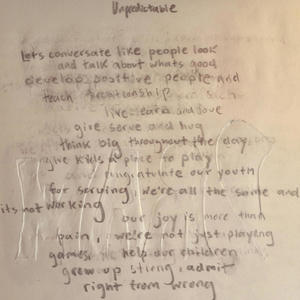 Unpredictable
lets conversate like people look
and talk about whats good
develop positive people and
teach relationship
live learn and love
give serve and hug
think big throughout the day
give kids a place to play
and congratulate our youth
for serving, we're all the same and
its not working
our joy is more than
pain, we're not just playing
games, we help our children
grow up strong, admit
right from wrong